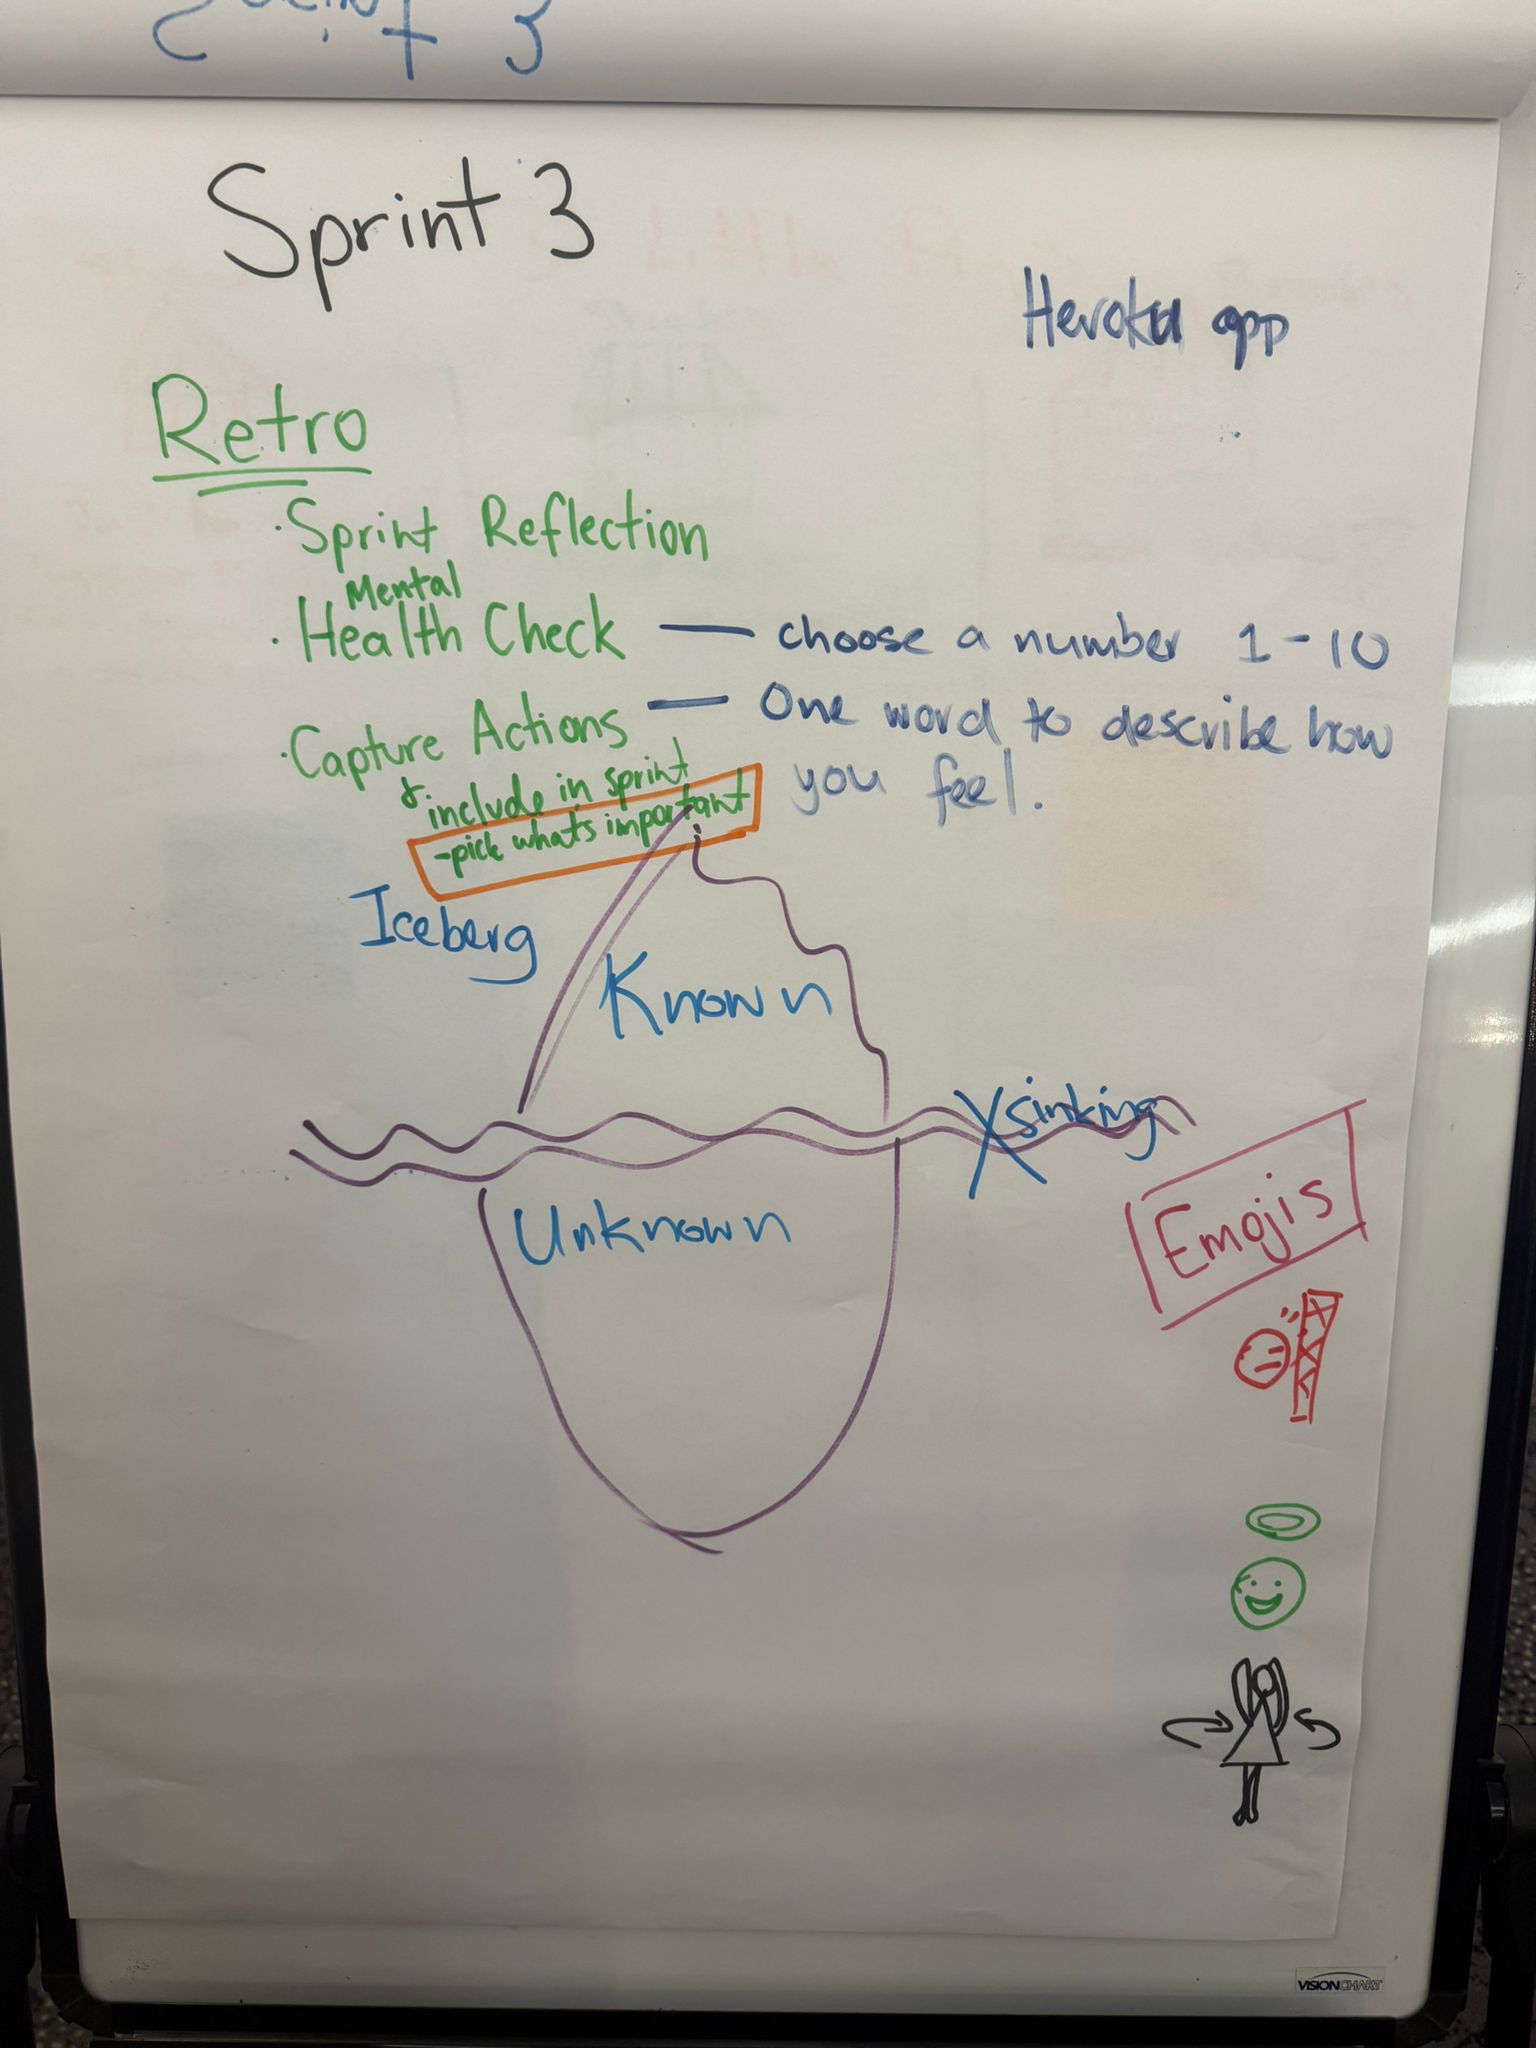 Sprint 3
Heroku app
Retro
· Sprint Reflection
Mental
· Health Check — choose a number 1-10
· Capture Actions — One word to describe how
you feel.
& include in sprint
-pick whats important
Iceberg
Known
X sinking
Unknown
Emojis
VISIONCHART